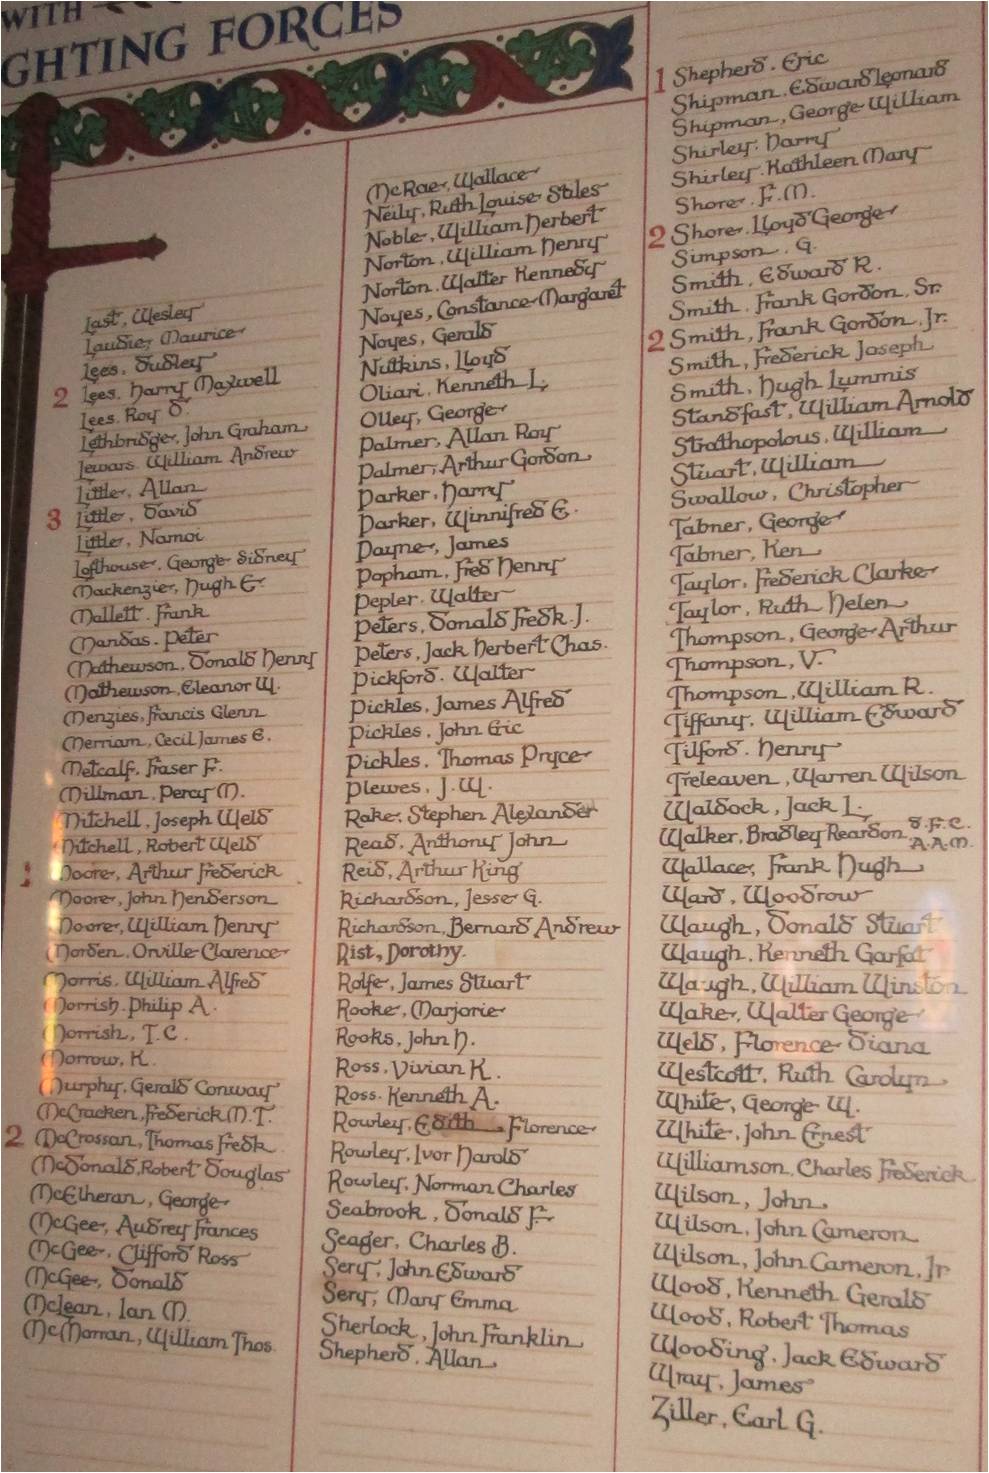 WITH
GHTING FORCES
Last, Wesley
Laudie, Maurice
Lees, Dudley
2 Lees, Harry Maxwell
Lees, Roy D.
Lethbridge, John Graham
Lewars William Andrew
Little, Allan
3 Little, David
Little, Namoi
Lofthouse, George Sidney
Mackenzie, Hugh E.
Mallett, Frank
Mandas, Peter
Mathewson, Donald Henry
Mathewson, Eleanor W.
Menzies, Francis Glenn
Merriam, Cecil James E.
Metcalf, Fraser F.
Millman, Percy M.
Mitchell, Joseph Weld
Mitchell, Robert Weld
1 Moore, Arthur Frederick
Moore, John Henderson
Moore, William Henry
Morden, Orville Clarence
Morris, William Alfred
Morrish, Philip A.
Morrish, T.C.
Morrow, K.
Murphy, Gerald Conway
McCracken, Frederick M.T.
2 McCrossan, Thomas Fredk.
McDonald, Robert Douglas
McElheran, George
McGee, Audrey Frances
McGee, Clifford Ross
McGee, Donald
McLean, Ian M.
McMorran, William Thos.
McRae, Wallace
Neily, Ruth Louise Stiles
Noble, William Herbert
Norton, William Henry
Norton, Walter Kennedy
Noyes, Constance Margaret
Noyes, Gerald
Nutkins, Lloyd
Oliari, Kenneth L.
Olley, George
Palmer, Allan Roy
Palmer, Arthur Gordon
Parker, Harry
Parker, Winnifred E.
Payne, James
Popham, Fred Henry
Pepler, Walter
Peters, Donald Fredk. J.
Peters, Jack Herbert Chas.
Pickford, Walter
Pickles, James Alfred
Pickles, John Eric
Pickles, Thomas Pryce
Plewes, J. W.
Rake, Stephen Alexander
Read, Anthony John
Reid, Arthur King
Richardson, Jesse G.
Richardson, Bernard Andrew
Rist, Dorothy.
Rolfe, James Stuart
Rooke, Marjorie
Rooks, John H.
Ross, Vivian K.
Ross, Kenneth A.
Rowley, Edith Florence
Rowley, Ivor Harold
Rowley, Norman Charles
Seabrook, Donald F.
Seager, Charles B.
Sery, John Edward
Sery, Mary Emma
Sherlock, John Franklin
Shepherd, Allan
1 Shepherd, Eric
Shipman, Edward Leonard
Shipman, George William
Shirley, Harry
Shirley, Kathleen Mary
Shore, F.M.
2 Shore, Lloyd George
Simpson, G.
Smith, Edward R.
Smith, Frank Gordon, Sr.
2 Smith, Frank Gordon, Jr.
Smith, Frederick Joseph
Smith, Hugh Lummis
Standfast, William Arnold
Strathopolous, William
Stuart, William
Swallow, Christopher
Tabner, George
Tabner, Ken
Taylor, Frederick Clarke
Taylor, Ruth Helen
Thompson, George Arthur
Thompson, V.
Thompson, William R.
Tiffany, William Edward
Tilford, Henry
Treleaven, Warren Wilson
Waldock, Jack L.
Walker, Bradley Reardon D.F.C. A.A.M.
Wallace, Frank Hugh
Ward, Woodrow
Waugh, Donald Stuart
Waugh, Kenneth Garfat
Waugh, William Winston
Wake, Walter George
Weld, Florence Diana
Westcott, Ruth Carolyn
White, George W.
White, John Ernest
Williamson, Charles Frederick
Wilson, John
Wilson, John Cameron
Wilson, John Cameron, Jr
Wood, Kenneth Gerald
Wood, Robert Thomas
Wooding, Jack Edward
Wray, James
Ziller, Earl G.